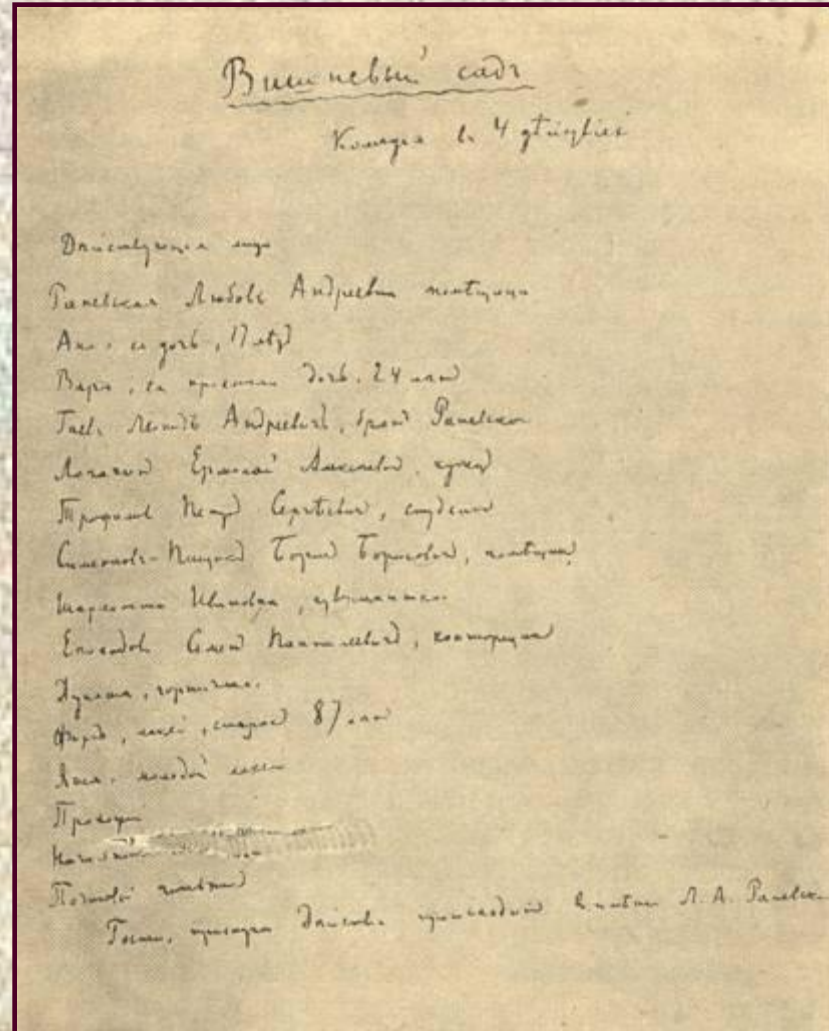 Вишневый садъ
Комедія в 4 дѣйствіяхъ
Дѣйствующія лица
Раневская Любовь Андреевна помѣщица
Аня, ея дочь, 17 лѣтъ
Варя, ея пріемная дочь, 24 лѣтъ
Гаевъ Леонидъ Андреевичъ, братъ Раневской
Лопахинъ Ермолай Алексѣевичъ, купецъ
Трофимовъ Петръ Сергѣевичъ, студентъ
Симеоновъ-Пищикъ Борисъ Борисовичъ, помѣщикъ
Шарлотта Ивановна, гувернантка
Епиходовъ Семенъ Пантелеевичъ, конторщикъ
Дуняша, горничная.
Фирсъ, лакей, старикъ 87 лѣтъ
Яша, молодой лакей
Прохожій
Начальникъ
Почтовый чиновникъ
Гости, прислуга Дѣйствіе происходитъ въ имѣніи Л. А. Раневской